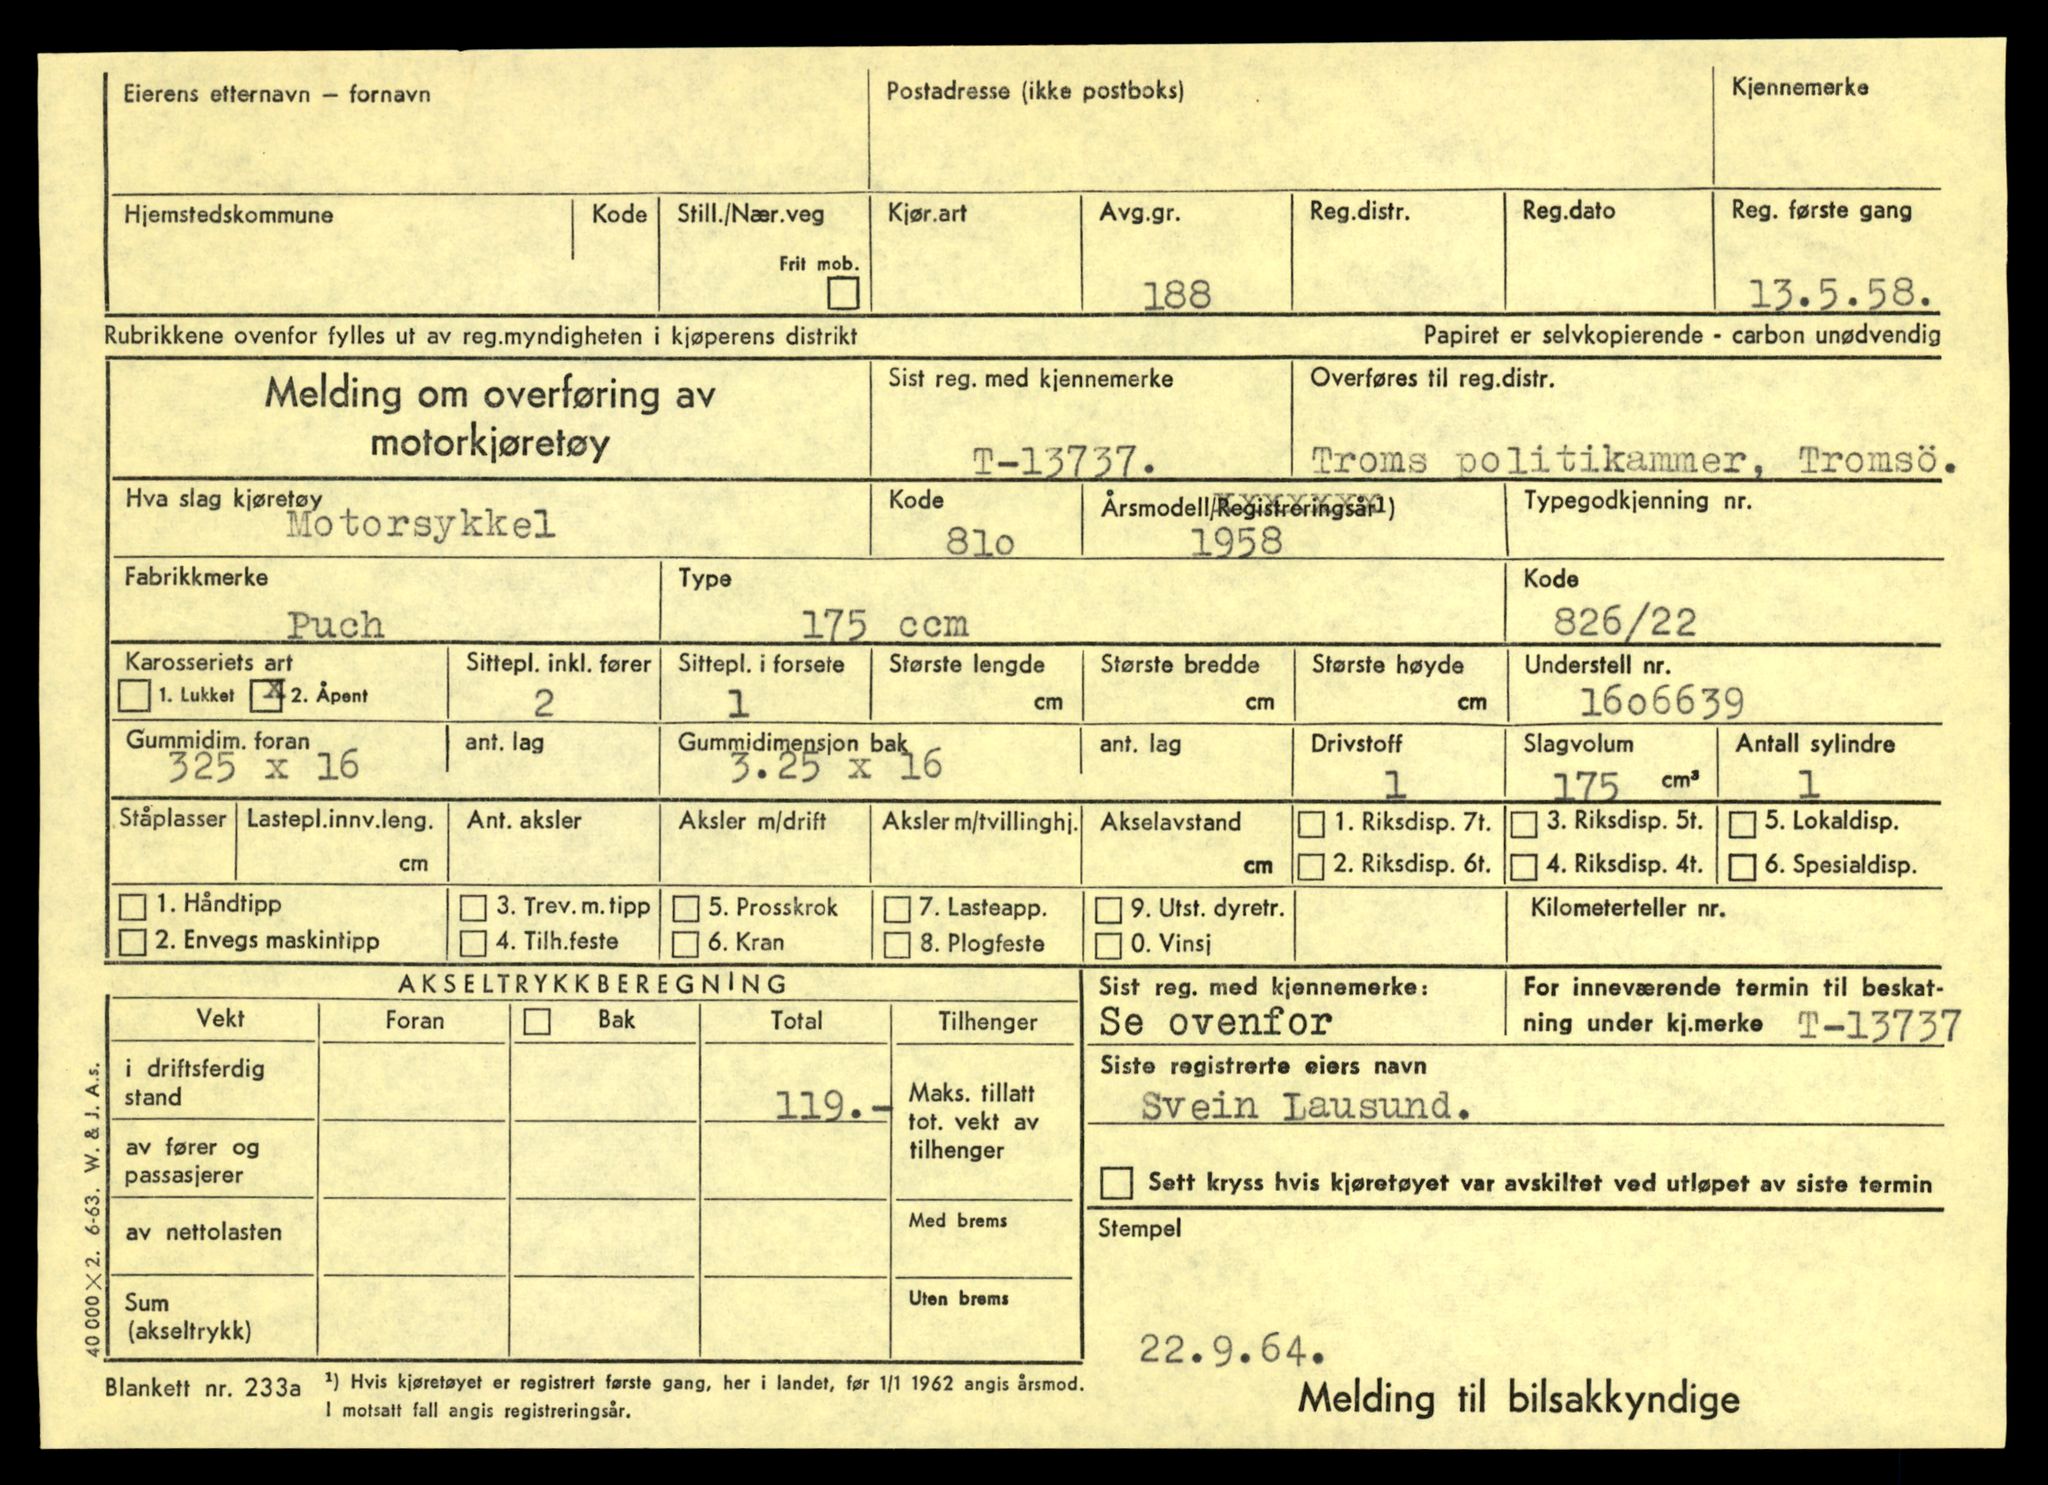 Eierens etternavn – fornavn
Postadresse (ikke postboks)
Kjennemerke
Hjemstedskommune
Kode
Still./Nær.veg
Frit mob.
Kjør.art
Avg.gr.
188
Reg.distr.
Reg.dato
Reg. første gang
13.5.58.
Rubrikkene ovenfor fylles ut av reg.myndigheten i kjøperens distrikt
Papiret er selvkopierende - carbon unødvendig
Melding om overføring av
motorkjøretøy
Sist reg. med kjennemerke
T-13737.
Overføres til reg.distr.
Troms politikammer, Tromsö.
Hva slag kjøretøy
Motorsykkel
Kode
81o
Årsmodell/Registreringsår¹)
1958
Typegodkjenning nr.
Fabrikkmerke
Puch
Type
175 ccm
Kode
826/22
Karosseriets art
1. Lukket x 2. Åpent
Sittepl. inkl. fører
2
Sittepl. i forsete
1
Største lengde
cm
Største bredde
cm
Største høyde
cm
Understell nr.
16o6639
Gummidim. foran
325 x 16
ant. lag
Gummidimensjon bak
3.25 x 16
ant. lag
Drivstoff
1
Slagvolum
175 cm³
Antall sylindre
1
Ståplasser
Lastepl.innv.leng.
cm
Ant. aksler
Aksler m/drift
Aksler m/tvillinghj.
Akselavstand
cm
1. Riksdisp. 7t.
2. Riksdisp. 6t.
3. Riksdisp. 5t.
4. Riksdisp. 4t.
5. Lokaldisp.
6. Spesialdisp.
1. Håndtipp
2. Envegs maskintipp
3. Trev. m. tipp
4. Tilh.feste
5. Prosskrok
6. Kran
7. Lasteapp.
8. Plogfeste
9. Utst. dyretr.
0. Vinsj
Kilometerteller nr.
AKSELTRYKKBEREGNING
Vekt
Foran
Bak
Total
Tilhenger
i driftsferdig
stand
119.-
Maks. tillatt
tot. vekt av
tilhenger
av fører og
passasjerer
av nettolasten
Med brems
Sum
(akseltrykk)
Uten brems
Sist reg. med kjennemerke:
Se ovenfor
For inneværende termin til beskat-
ning under kj.merke T-13737
Siste registrerte eiers navn
Svein Lausund.
Sett kryss hvis kjøretøyet var avskiltet ved utløpet av siste termin
Stempel
22.9.64.
Melding til bilsakkyndige
40 000 × 2. 6-63. W. & J. A.s.
Blankett nr. 233a
¹) Hvis kjøretøyet er registrert første gang, her i landet, før 1/1 1962 angis årsmod.
I motsatt fall angis registreringsår.